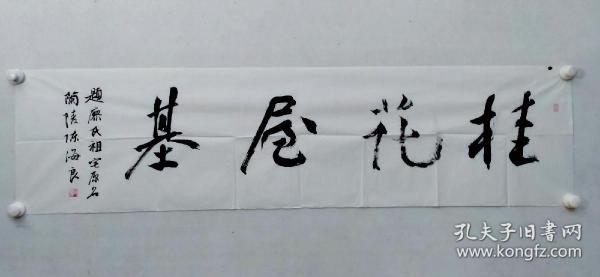 桂花屋基
题廉氏祖宅原名
兰陵陈海良
孔夫子旧书网
www.kongfz.com